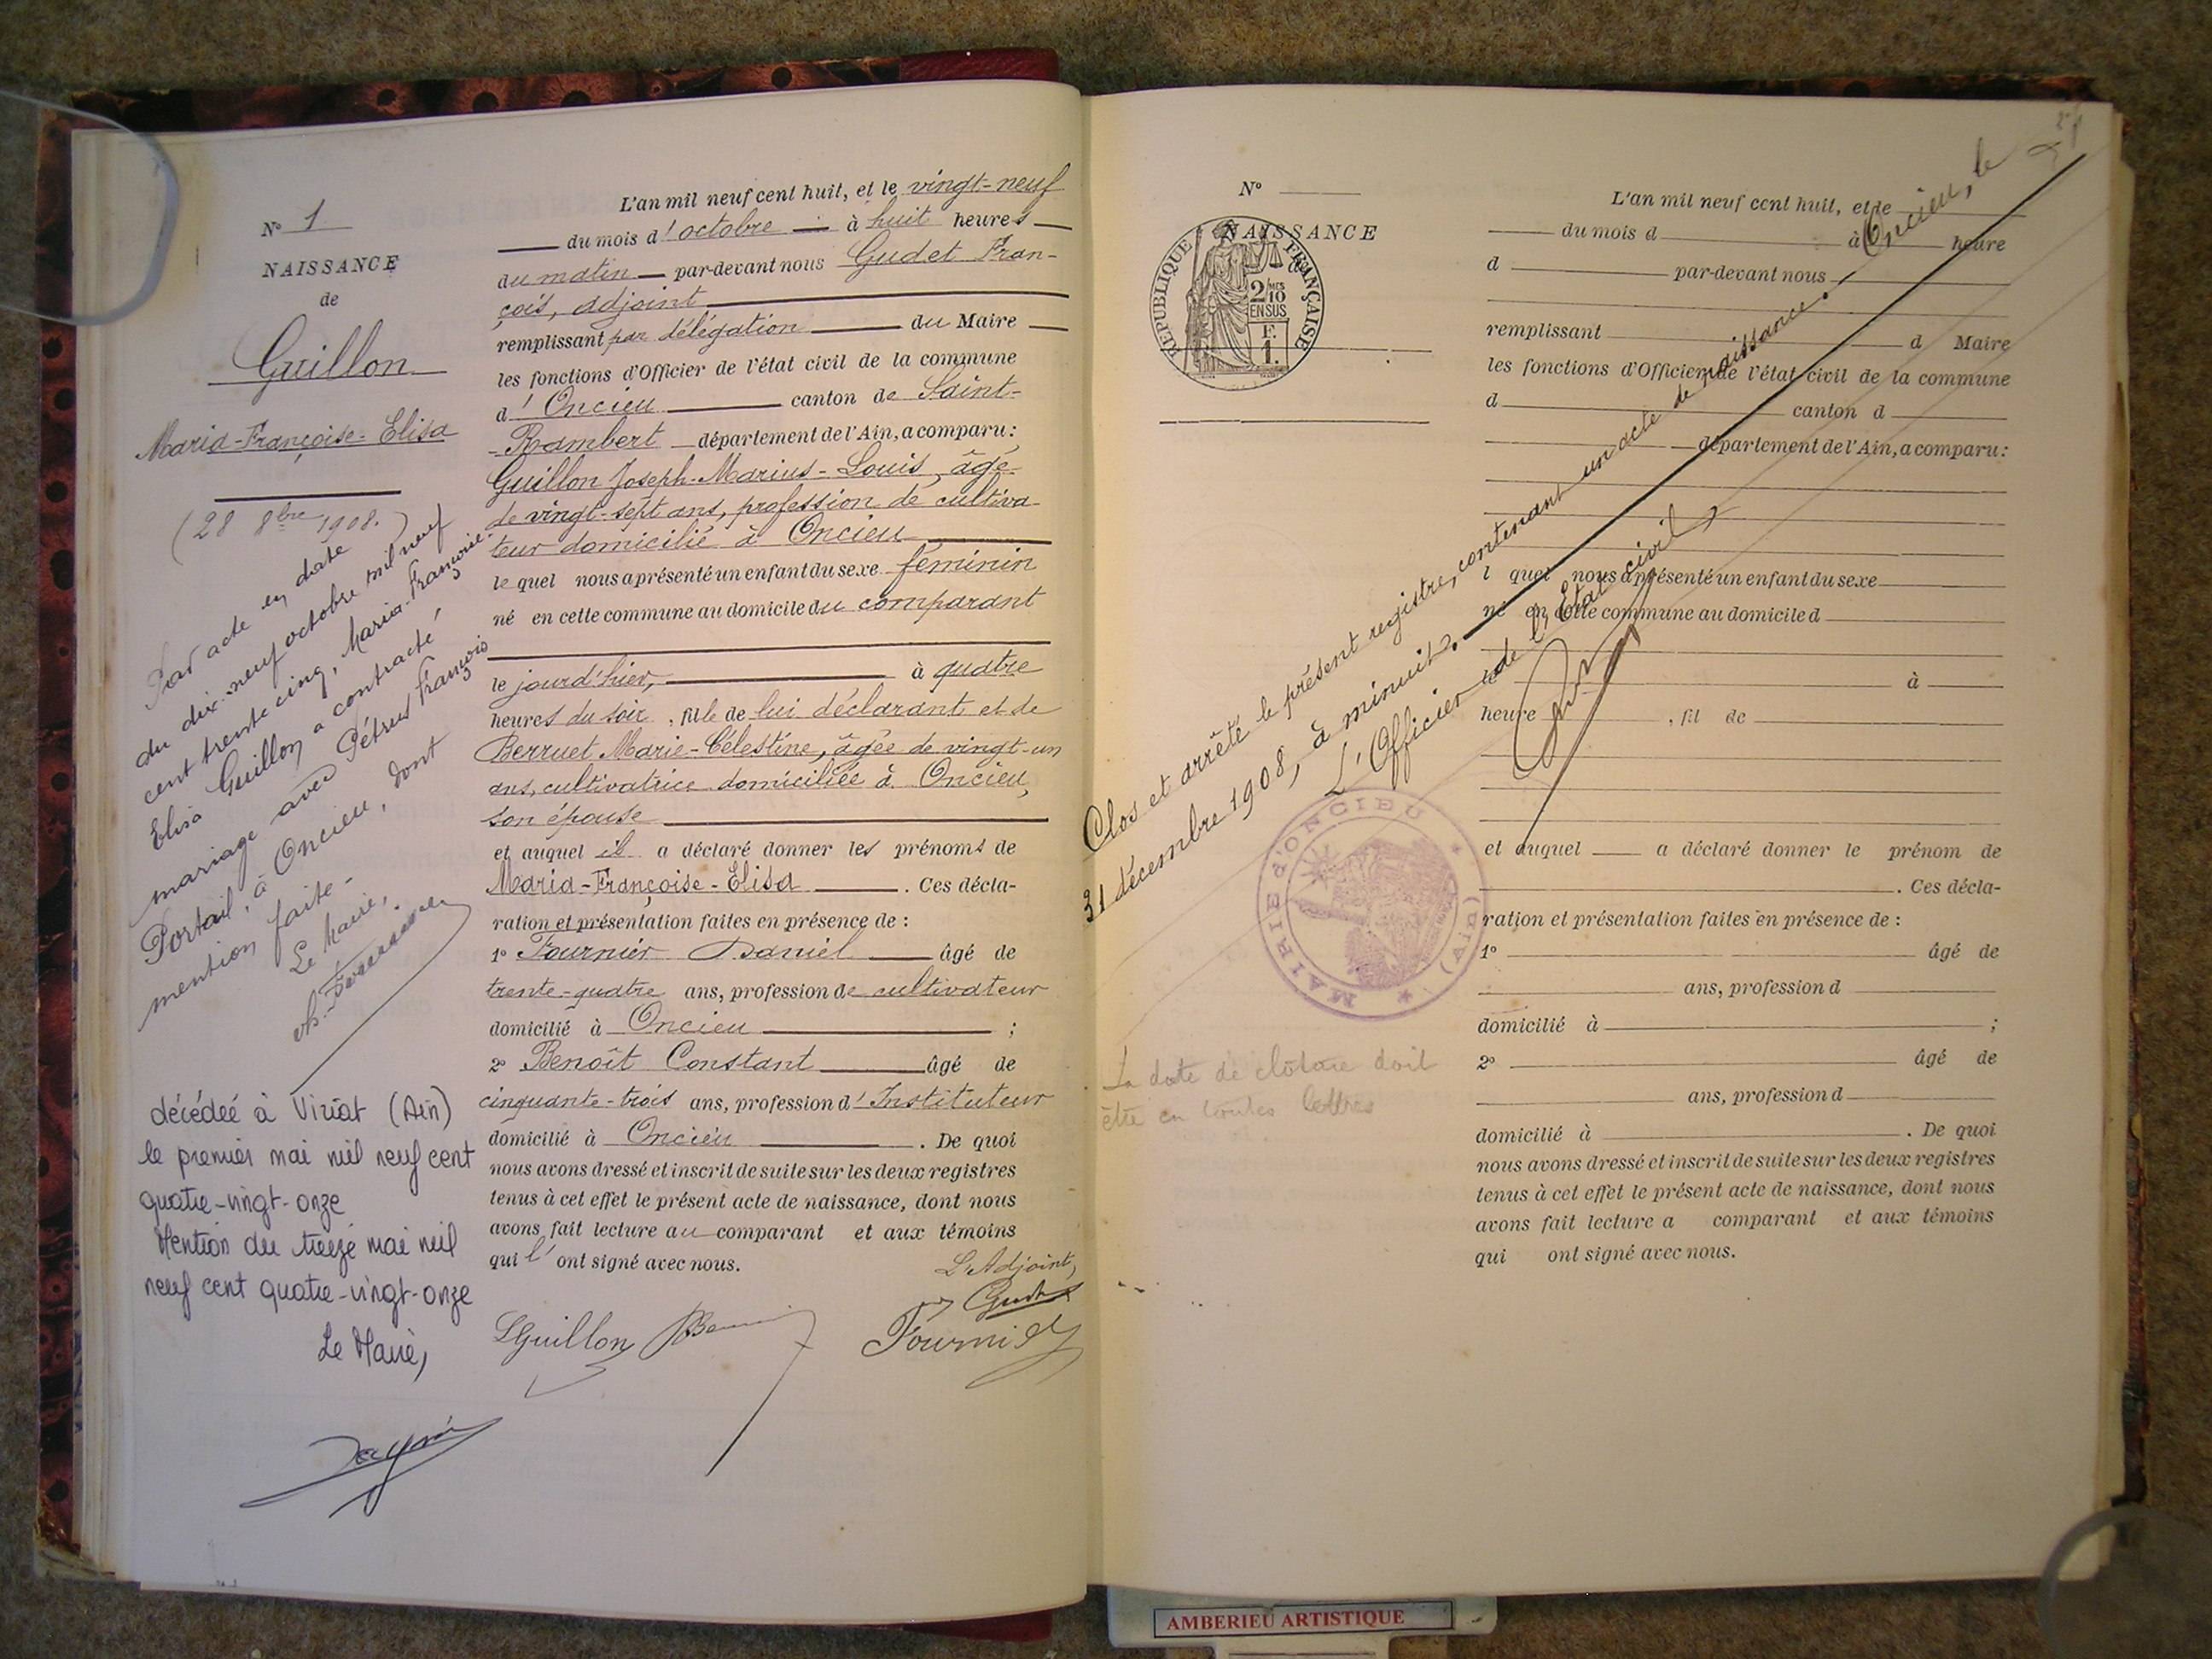 N° 1
NAISSANCE
de
Guillon
Maria-Françoise-Elisa
(28 8bre 1908.)
Par acte en date
du dix-neuf octobre mil neuf
cent trente cinq, Maria-Françoise-
Elisa Guillon a contracté
mariage avec Pétrus François
Portail, à Oncieu, dont
mention faite-
Le Maire,
décédée à Viriat (Ain)
le premier mai mil neuf cent
quatre-vingt-onze
Mention du treize mai mil
neuf cent quatre-vingt-onze
Le Maire,
L'an mil neuf cent huit, et le vingt-neuf
du mois d'octobre à huit heures
du matin par-devant nous Gudet Fran-
çois, adjoint
remplissant par délégation du Maire
les fonctions d'Officier de l'état civil de la commune
d'Oncieu canton de Saint-
-Rambert département de l'Ain, a comparu:
Guillon Joseph-Marius-Louis, âgé
de vingt-sept ans, profession de cultiva-
teur domicilié à Oncieu
lequel nous a présenté un enfant du sexe féminin
né en cette commune au domicile du comparant
le jourd'hier, à quatre
heures du soir, fille de lui déclarant et de
Berruet Marie-Célestine, âgée de vingt-un
ans, cultivatrice domiciliée à Oncieu,
son épouse
et auquel il a déclaré donner les prénoms de
Maria-Françoise-Elisa. Ces décla-
ration et présentation faites en présence de :
1° Fournier Daniel âgé de
trente-quatre ans, profession de cultivateur
domicilié à Oncieu ;
2° Benoît Constant âgé de
cinquante-trois ans, profession d'Instituteur
domicilié à Oncieu. De quoi
nous avons dressé et inscrit de suite sur les deux registres
tenus à cet effet le présent acte de naissance, dont nous
avons fait lecture au comparant et aux témoins
qui l'ont signé avec nous.
L'Adjoint,
Gudet
LGuillon
Fournier
N°
NAISSANCE
RÉPUBLIQUE FRANÇAISE
2/10 MES
EN SUS
F.
1.
L'an mil neuf cent huit, et le
du mois d à heure
d par-devant nous
remplissant d Maire
les fonctions d'Officier de l'état civil de la commune
d canton d
département de l'Ain, a comparu:
l quel nous a présenté un enfant du sexe
né en cette commune au domicile d
le à
heure , fil de
et auquel a déclaré donner le prénom de
. Ces décla-
ration et présentation faites en présence de :
1° âgé de
ans, profession d
domicilié à ;
2° âgé de
ans, profession d
domicilié à . De quoi
nous avons dressé et inscrit de suite sur les deux registres
tenus à cet effet le présent acte de naissance, dont nous
avons fait lecture a comparant et aux témoins
qui ont signé avec nous.
Clos et arrêté le présent registre, contenant un acte de naissance. / Oncieu, le
31 décembre 1908, à minuit.
L'Officier de l'Etat civil,
MAIRIE d'ONCIEU (AIN)
La date de clôture doit
être en toutes lettres
AMBERIEU ARTISTIQUE